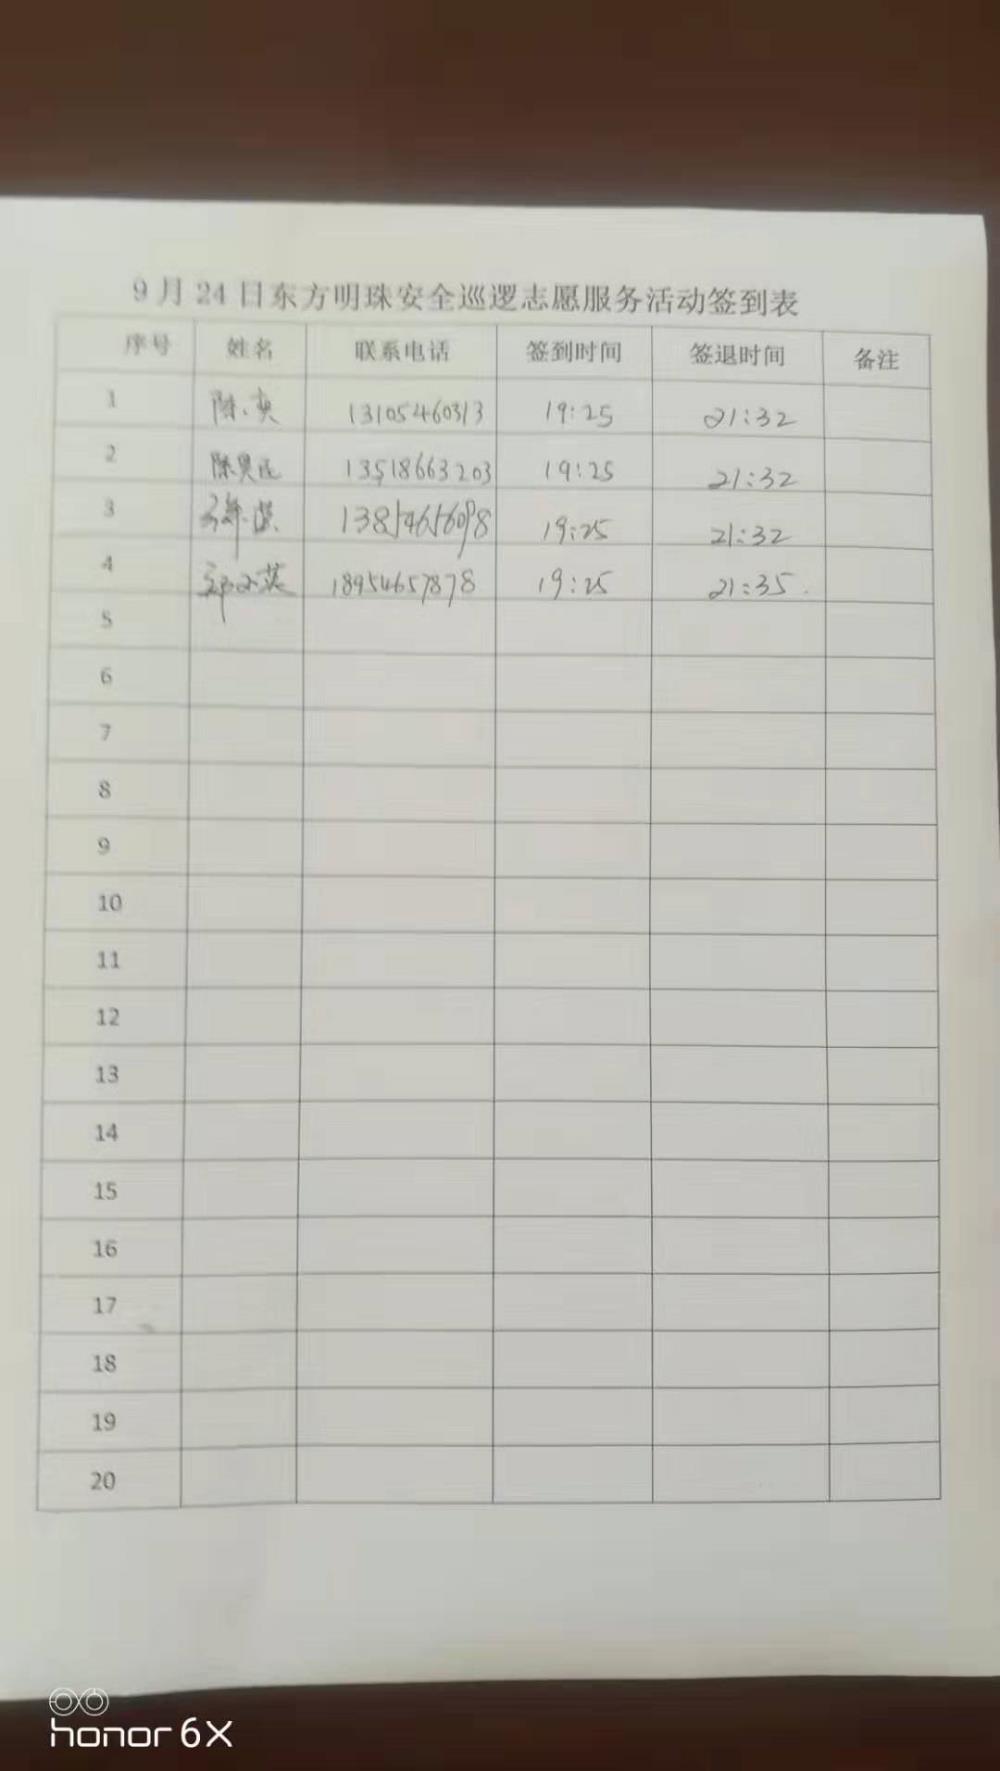 9月24日东方明珠安全巡逻志愿服务活动签到表
序号 姓名 联系电话 签到时间 签退时间 备注
1 陈 13105460313 19:25 21:32
2 陈 13518663203 19:25 21:32
3 13854656098 19:25 21:32
4 邓小英 18954657878 19:25 21:35
5
6
7
8
9
10
11
12
13
14
15
16
17
18
19
20
honor 6X